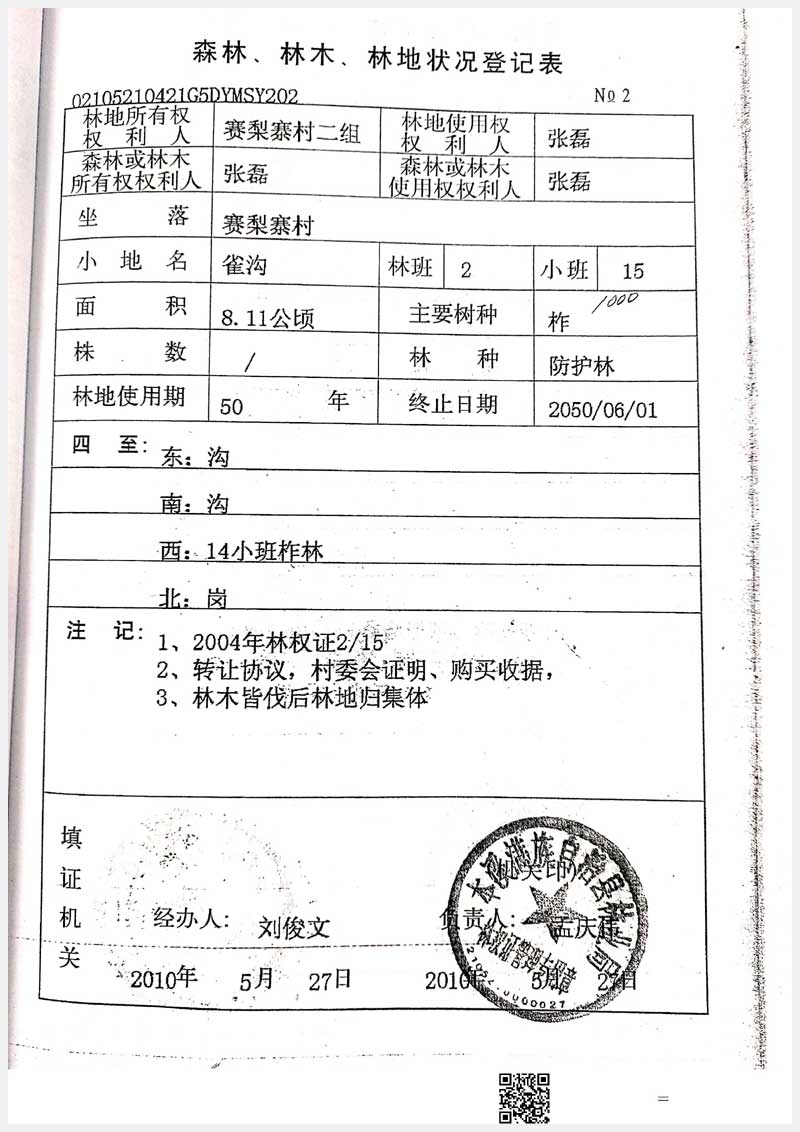 森林、林木、林地状况登记表
02105210421G5DYMSY202 № 2
林地所有权权利人 赛梨寨村二组 林地使用权权利人 张磊
森林或林木所有权权利人 张磊 森林或林木使用权权利人 张磊
坐落 赛梨寨村
小地名 雀沟 林班 2 小班 15
面积 8.11公顷 主要树种 柞 1000
株数 / 林种 防护林
林地使用期 50 年 终止日期 2050/06/01
四至: 东: 沟
南: 沟
西: 14小班柞林
北: 岗
注记: 1、2004年林权证2/15
2、转让协议, 村委会证明、购买收据,
3、林木皆伐后林地归集体
填证机关
本溪满族自治县林业局
(机关印)
经办人: 刘俊文 负责人: 孟庆
2010年 5月 27日 2010年 5月 27日
=